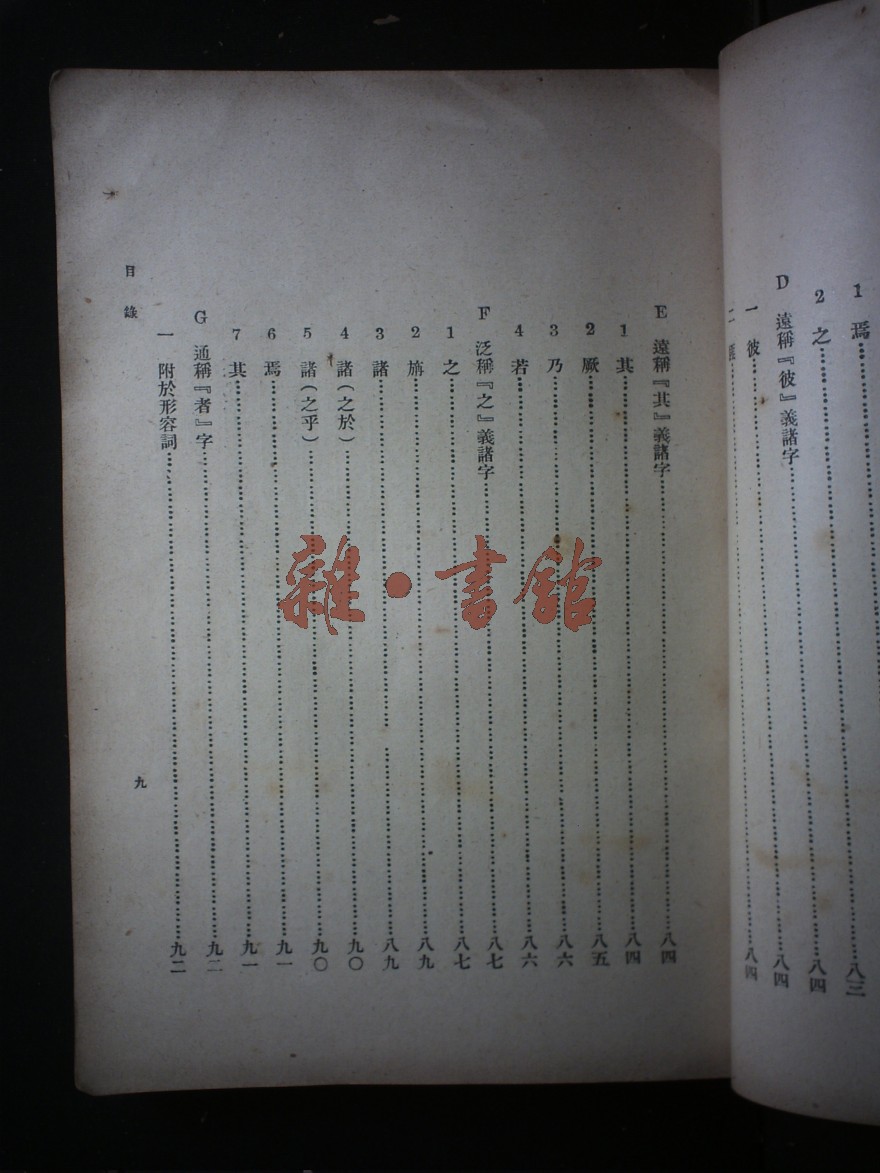 1 焉……八三
2 之……八四
D 遠稱『彼』義諸字……八四
一 彼……八四
E 遠稱『其』義諸字……八四
1 其……八四
2 厥……八五
3 乃……八六
4 若……八六
F 泛稱『之』義諸字……八七
1 之……八七
2 旃……八九
3 諸……八九
4 諸(之於)……九〇
5 諸(之乎)……九〇
6 焉……九一
7 其……九一
G 通稱『者』字……九二
一 附於形容詞……九二
目錄
九
雜·書館